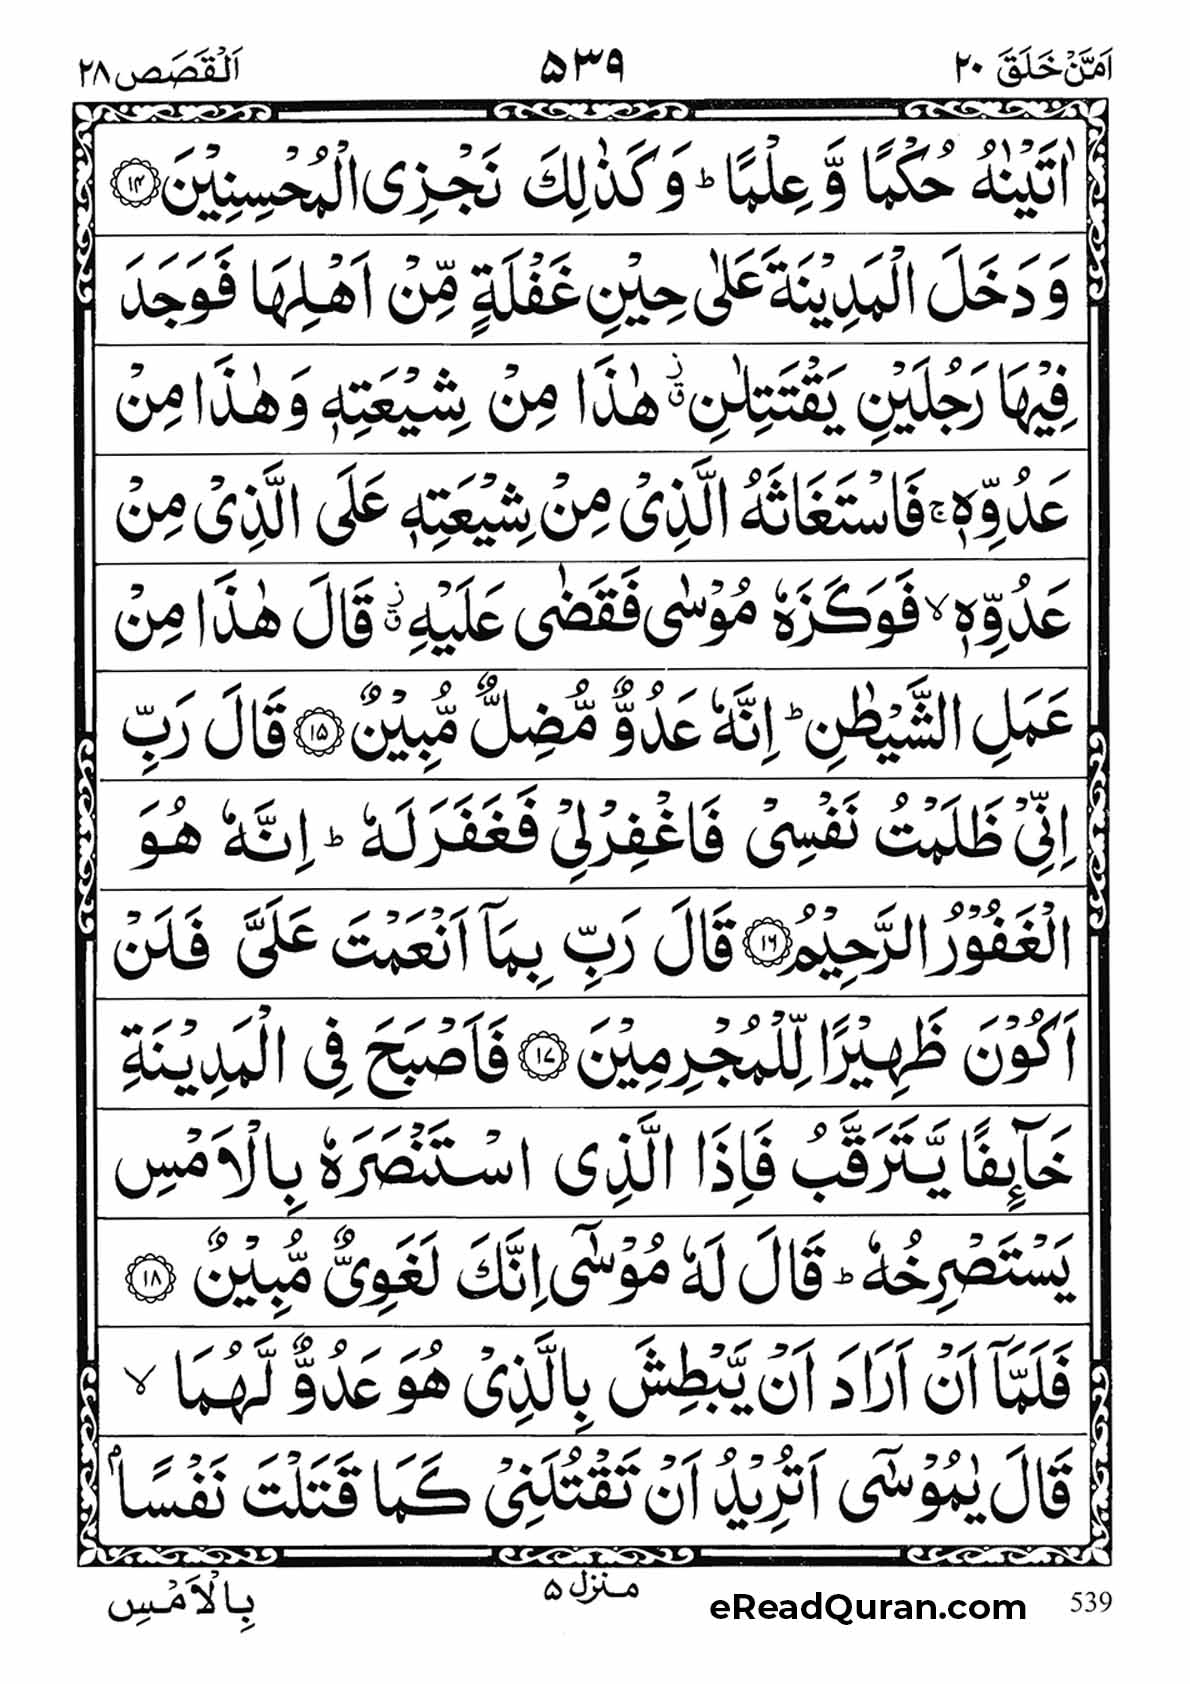 اَمَّنْ خَلَقَ ٢٠ ۵۳۹ اَلْقَصَص ٢٨
اٰتَيْنٰهُ حُكْمًا وَّ عِلْمًا ؕ وَ كَذٰلِكَ نَجْزِى الْمُحْسِنِيْنَ ۝١۴
وَ دَخَلَ الْمَدِيْنَةَ عَلٰى حِيْنِ غَفْلَةٍ مِّنْ اَهْلِهَا فَوَجَدَ
فِيْهَا رَجُلَيْنِ يَقْتَتِلٰنِ ؗ هٰذَا مِنْ شِيْعَتِهٖ وَهٰذَا مِنْ
عَدُوِّهٖ ۚ فَاسْتَغَاثَهُ الَّذِىْ مِنْ شِيْعَتِهٖ عَلَى الَّذِىْ مِنْ
عَدُوِّهٖ ۙ فَوَكَزَهٗ مُوْسٰى فَقَضٰى عَلَيْهِ ؗ قَالَ هٰذَا مِنْ
عَمَلِ الشَّيْطٰنِ ؕ اِنَّهٗ عَدُوٌّ مُّضِلٌّ مُّبِيْنٌ ۝١۵ قَالَ رَبِّ
اِنِّىْ ظَلَمْتُ نَفْسِىْ فَاغْفِرْلِىْ فَغَفَرَ لَهٗ ؕ اِنَّهٗ هُوَ
الْغَفُوْرُ الرَّحِيْمُ ۝١٦ قَالَ رَبِّ بِمَاۤ اَنْعَمْتَ عَلَىَّ فَلَنْ
اَكُوْنَ ظَهِيْرًا لِّلْمُجْرِمِيْنَ ۝١٧ فَاَصْبَحَ فِى الْمَدِيْنَةِ
خَآئِفًا يَّتَرَقَّبُ فَاِذَا الَّذِى اسْتَنْصَرَهٗ بِالْاَمْسِ
يَسْتَصْرِخُهٗ ؕ قَالَ لَهٗ مُوْسٰۤى اِنَّكَ لَغَوِىٌّ مُّبِيْنٌ ۝١٨
فَلَمَّاۤ اَنْ اَرَادَ اَنْ يَّبْطِشَ بِالَّذِىْ هُوَ عَدُوٌّ لَّهُمَا ۙ
قَالَ يٰمُوْسٰۤى اَتُرِيْدُ اَنْ تَقْتُلَنِىْ كَمَا قَتَلْتَ نَفْسًاۢ
539 eReadQuran.com منزل ۵ بِالْاَمْسِ